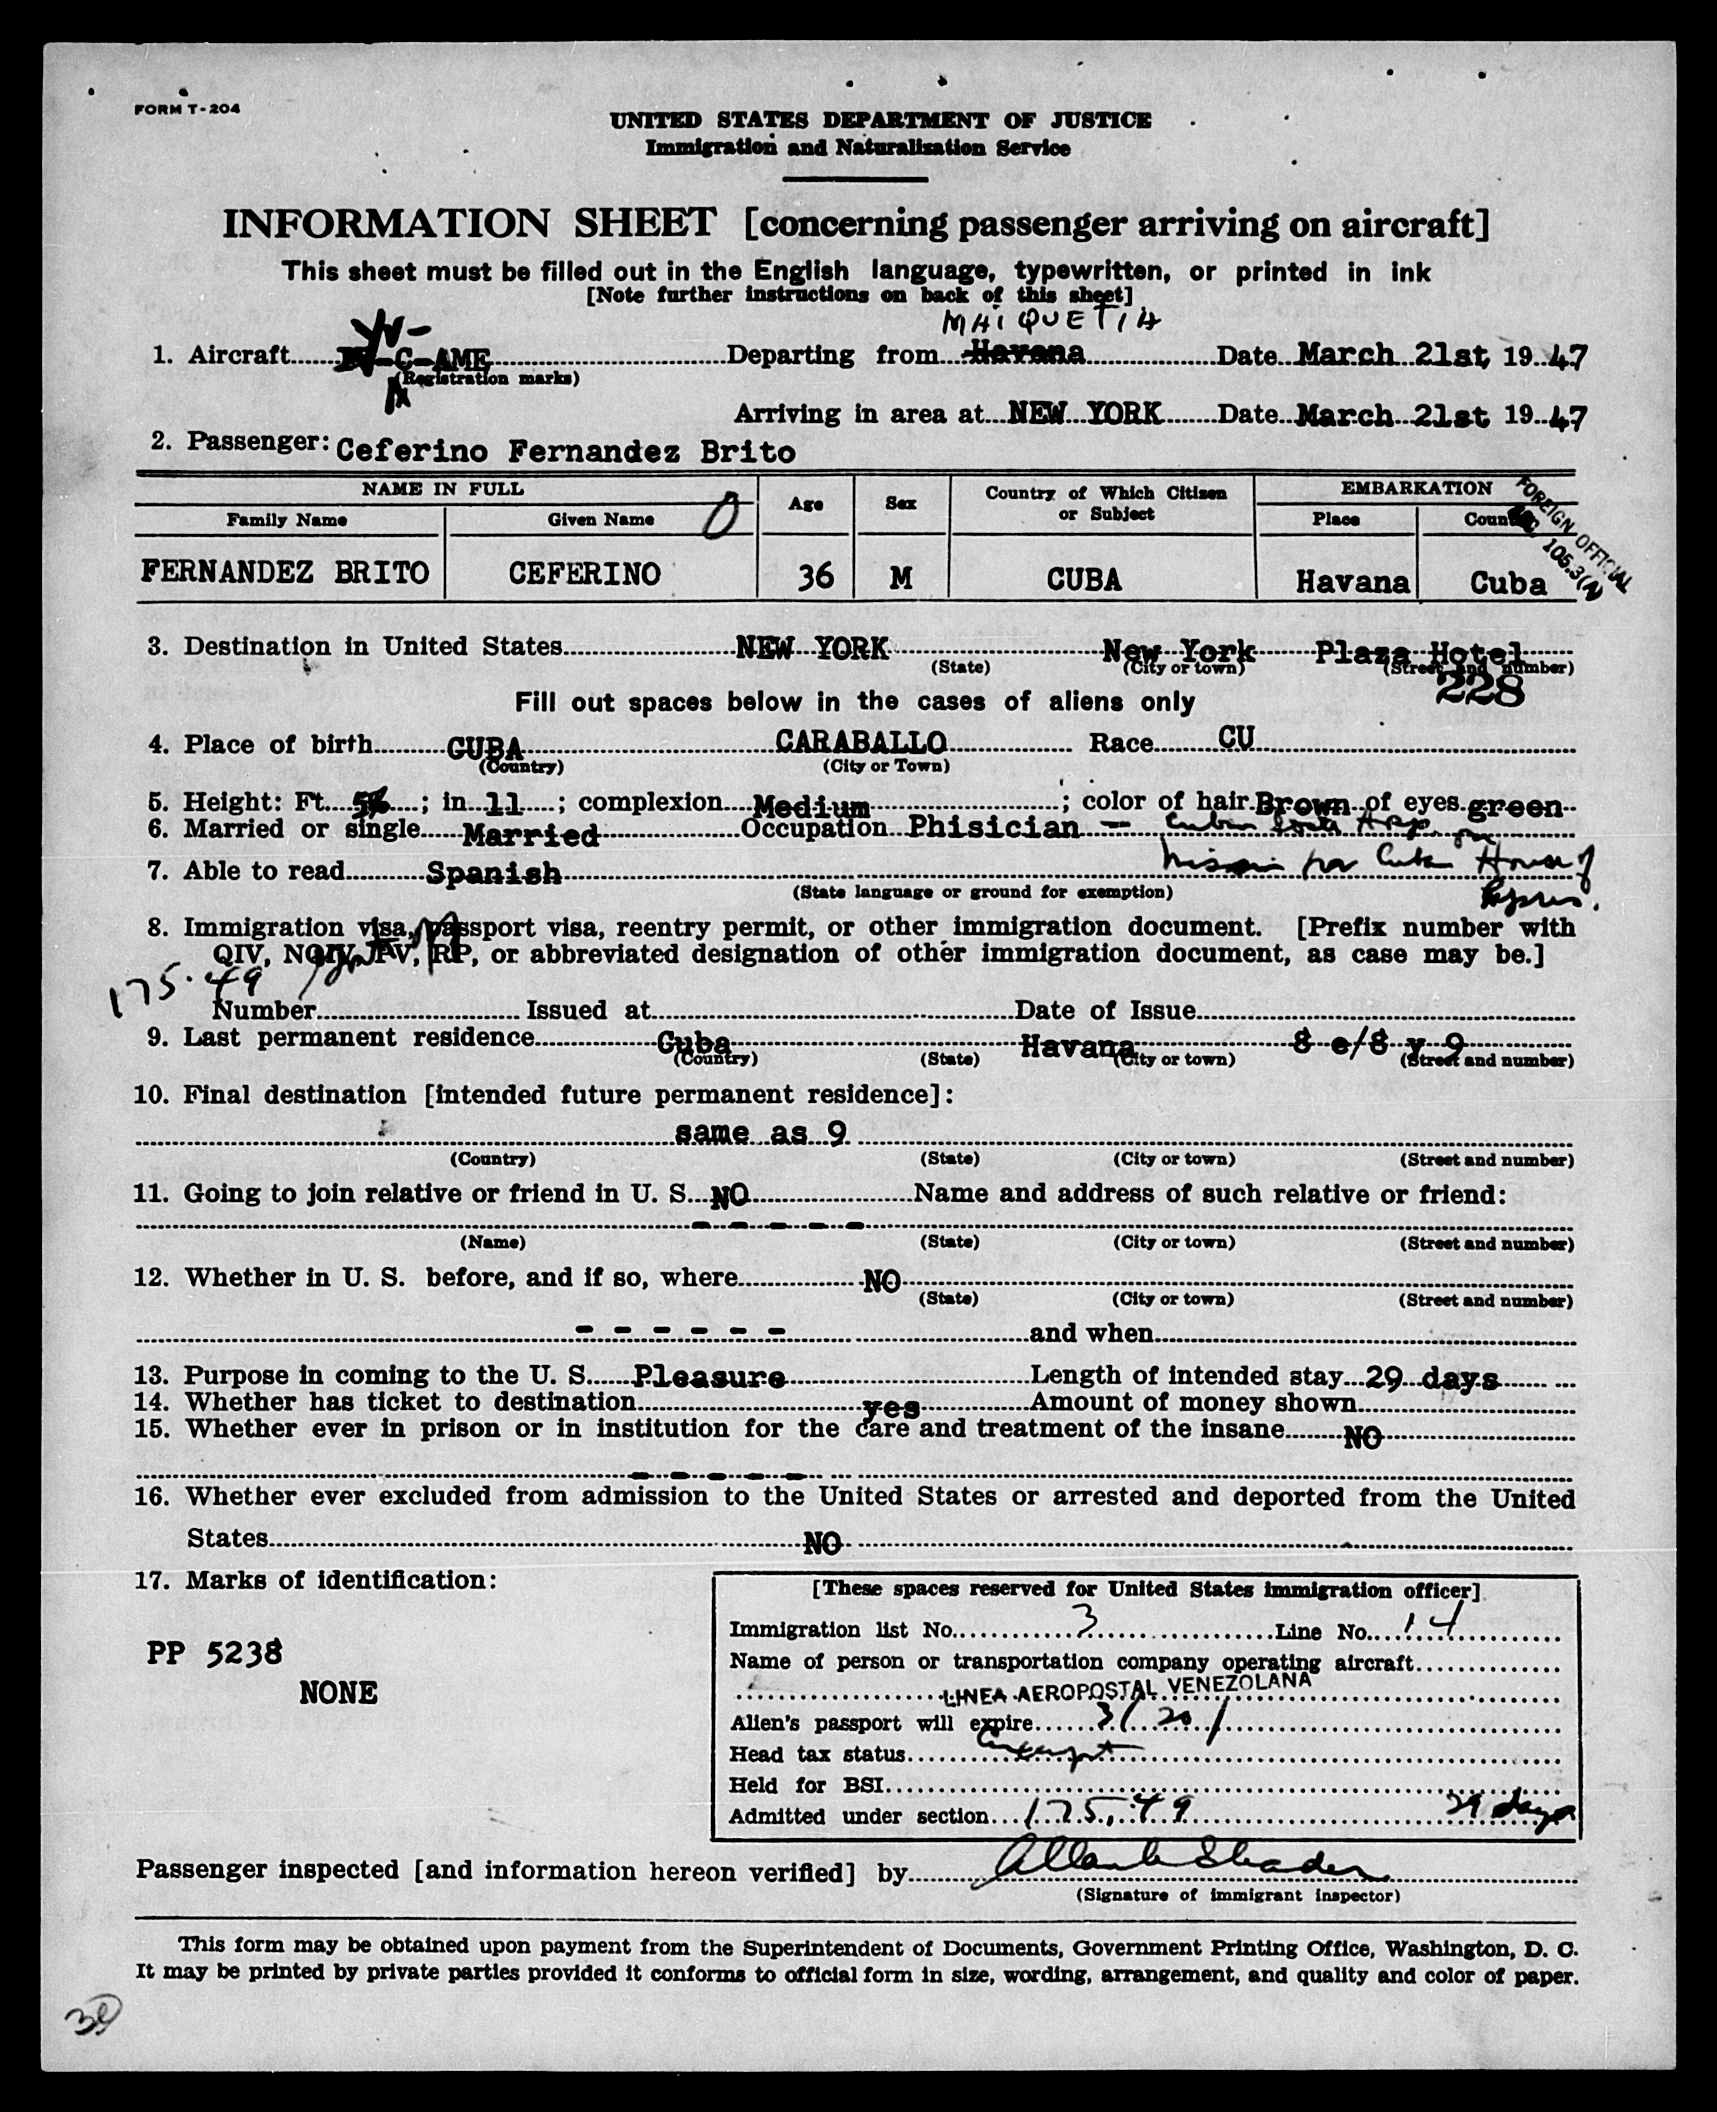 FORM T-204
UNITED STATES DEPARTMENT OF JUSTICE
Immigration and Naturalization Service
INFORMATION SHEET [concerning passenger arriving on aircraft]
This sheet must be filled out in the English language, typewritten, or printed in ink
[Note further instructions on back of this sheet]
MAIQUETIA
YV-
1. Aircraft -C-AME Departing from Havana Date March 21st, 19 47
(Registration marks)
Arriving in area at NEW YORK Date March 21st, 19 47
2. Passenger: Ceferino Fernandez Brito
NAME IN FULL Age Sex Country of Which Citizen or Subject EMBARKATION
Family Name Given Name Place Country
FOREIGN OFFICIAL
105.3(
FERNANDEZ BRITO CEFERINO 36 M CUBA Havana Cuba
3. Destination in United States NEW YORK New York Plaza Hotel
(State) (City or town) (Street and number)
228
Fill out spaces below in the cases of aliens only
4. Place of birth CUBA CARABALLO Race CU
(Country) (City or Town)
5. Height: Ft. 5 ; in. 11 ; complexion Medium ; color of hair Brown of eyes green
6. Married or single Married Occupation Phisician — Cuban
for Cuba House of
7. Able to read Spanish
(State language or ground for exemption)
8. Immigration visa, passport visa, reentry permit, or other immigration document. [Prefix number with
QIV, NQIV, PV, RP, or abbreviated designation of other immigration document, as case may be.]
175.49
Number Issued at Date of Issue
9. Last permanent residence Cuba Havana 8 e/8 y 9
(Country) (State) (City or town) (Street and number)
10. Final destination [intended future permanent residence]:
same as 9
(Country) (State) (City or town) (Street and number)
11. Going to join relative or friend in U. S. NO Name and address of such relative or friend:
- - - - -
(Name) (State) (City or town) (Street and number)
12. Whether in U. S. before, and if so, where NO
(State) (City or town) (Street and number)
- - - - - - and when
13. Purpose in coming to the U. S. Pleasure Length of intended stay 29 days
14. Whether has ticket to destination yes Amount of money shown
15. Whether ever in prison or in institution for the care and treatment of the insane NO
- - - - -
16. Whether ever excluded from admission to the United States or arrested and deported from the United
States NO
17. Marks of identification:
PP 5238
NONE
[These spaces reserved for United States immigration officer]
Immigration list No. 3 Line No. 14
Name of person or transportation company operating aircraft
LINEA AEROPOSTAL VENEZOLANA
Alien's passport will expire 3/20/
Head tax status Exempt
Held for BSI
Admitted under section 175.49 29 days
Passenger inspected [and information hereon verified] by
(Signature of immigrant inspector)
This form may be obtained upon payment from the Superintendent of Documents, Government Printing Office, Washington, D. C.
It may be printed by private parties provided it conforms to official form in size, wording, arrangement, and quality and color of paper.